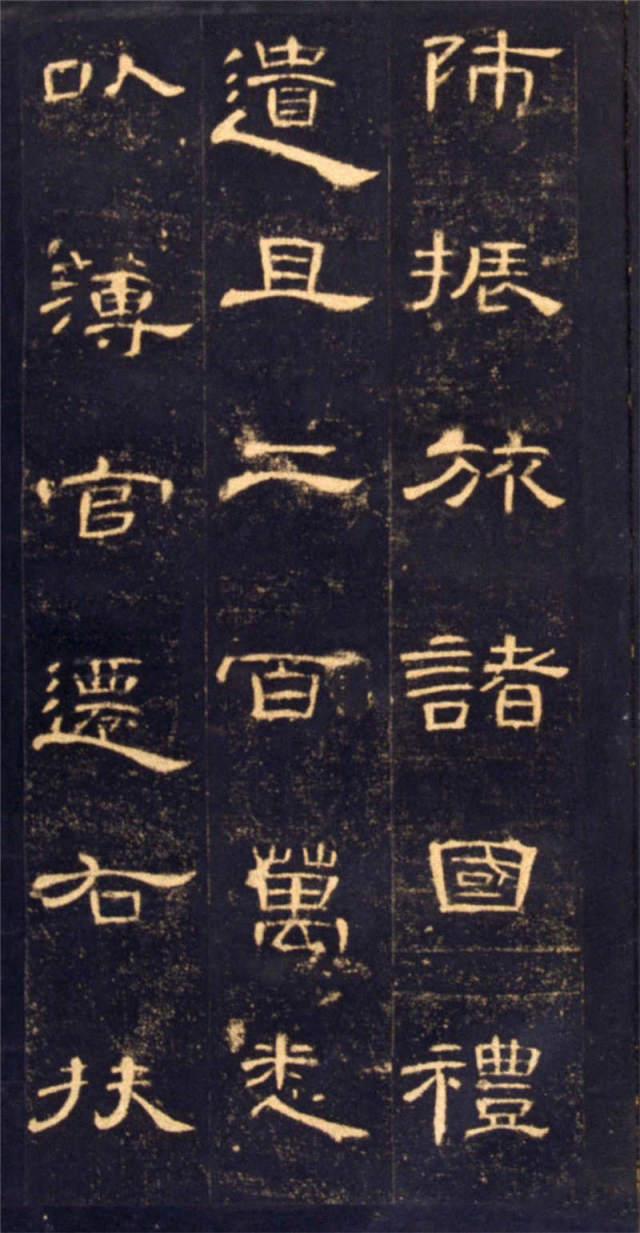 師振旅諸國禮
遺且二百萬悉
以薄官還右扶